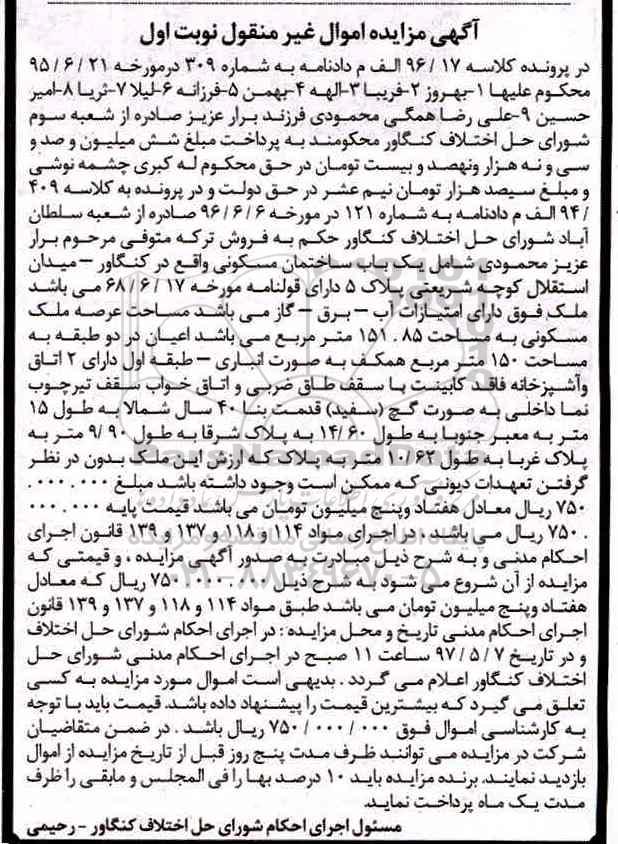 آگهی مزایده اموال غیر منقول نوبت اول
در پرونده کلاسه ۱۷ / ۹۶ الف م دادنامه به شماره ۳۰۹ درمورخه ۲۱ / ۶ / ۹۵
محکوم علیها ۱-بهروز ۲-فریبا ۳-الهه ۴-بهمن ۵-فرزانه ۶-لیلا ۷-ثریا ۸-امیر
حسین ۹-علی رضا همگی محمودی فرزند برار عزیز صادره از شعبه سوم
شورای حل اختلاف کنگاور محکومند به پرداخت مبلغ شش میلیون و صد و
سی و نه هزار ونهصد و بیست تومان در حق محکوم له کبری چشمه نوشی
و مبلغ سیصد هزار تومان نیم عشر در حق دولت و در پرونده به کلاسه ۴۰۹
/ ۹۴ الف م دادنامه به شماره ۱۲۱ در مورخه ۶ / ۶ / ۹۶ صادره از شعبه سلطان
آباد شورای حل اختلاف کنگاور حکم به فروش ترکه متوفی مرحوم برار
عزیز محمودی شامل یک باب ساختمان مسکونی واقع در کنگاور – میدان
استقلال کوچه شریعتی پلاک ۵ دارای قولنامه مورخه ۱۷ / ۶ / ۶۸ می باشد
ملک فوق دارای امتیازات آب – برق – گاز می باشد مساحت عرصه ملک
مسکونی به مساحت ۸۵ . ۱۵۱ متر مربع می باشد اعیان در دو طبقه به
مساحت ۱۵۰ متر مربع همکف به صورت انباری – طبقه اول دارای ۲ اتاق
وآشپزخانه فاقد کابینت با سقف طاق ضربی و اتاق خواب سقف تیرچوب
نما داخلی به صورت گچ (سفید) قدمت بنا ۴۰ سال شمالا به طول ۱۵
متر به معبر جنوبا به طول ۱۴/۶۰ به پلاک شرقا به طول ۹/۹۰ متر به
پلاک غربا به طول ۱۰/۶۲ متر به پلاک که ارزش این ملک بدون در نظر
گرفتن تعهدات دیونی که ممکن است وجود داشته باشد مبلغ ۰۰۰ . ۰۰۰ .
۷۵۰ ریال معادل هفتاد وپنج میلیون تومان می باشد قیمت پایه ۰۰۰ . ۰۰۰
. ۷۵۰ ریال می باشد . در اجرای مواد ۱۱۴ و ۱۱۸ و ۱۳۷ و ۱۳۹ قانون اجرای
احکام مدنی و به شرح ذیل مبادرت به صدور آگهی مزایده ، و قیمتی که
مزایده از آن شروع می شود به شرح ذیل ۰۰۰ . ۰۰۰ . ۷۵۰ ریال که معادل
هفتاد وپنج میلیون تومان می باشد طبق مواد ۱۱۴ و ۱۱۸ و ۱۳۷ و ۱۳۹ قانون
اجرای احکام مدنی تاریخ و محل مزایده : در اجرای احکام شورای حل اختلاف
و در تاریخ ۷ / ۵ / ۹۷ ساعت ۱۱ صبح در اجرای احکام مدنی شورای حل
اختلاف کنگاور اعلام می گردد . بدیهی است اموال مورد مزایده به کسی
تعلق می گیرد که بیشترین قیمت را پیشنهاد داده باشد. قیمت باید با توجه
به کارشناسی اموال فوق ۰۰۰ / ۰۰۰ / ۷۵۰ ریال باشد . در ضمن متقاضیان
شرکت در مزایده می توانند ظرف مدت پنج روز قبل از تاریخ مزایده از اموال
بازدید نمایند. برنده مزایده باید ۱۰ درصد بها را فی المجلس و مابقی را ظرف
مدت یک ماه پرداخت نماید.
مسئول اجرای احکام شورای حل اختلاف کنگاور - رحیمی
ParsNamadData